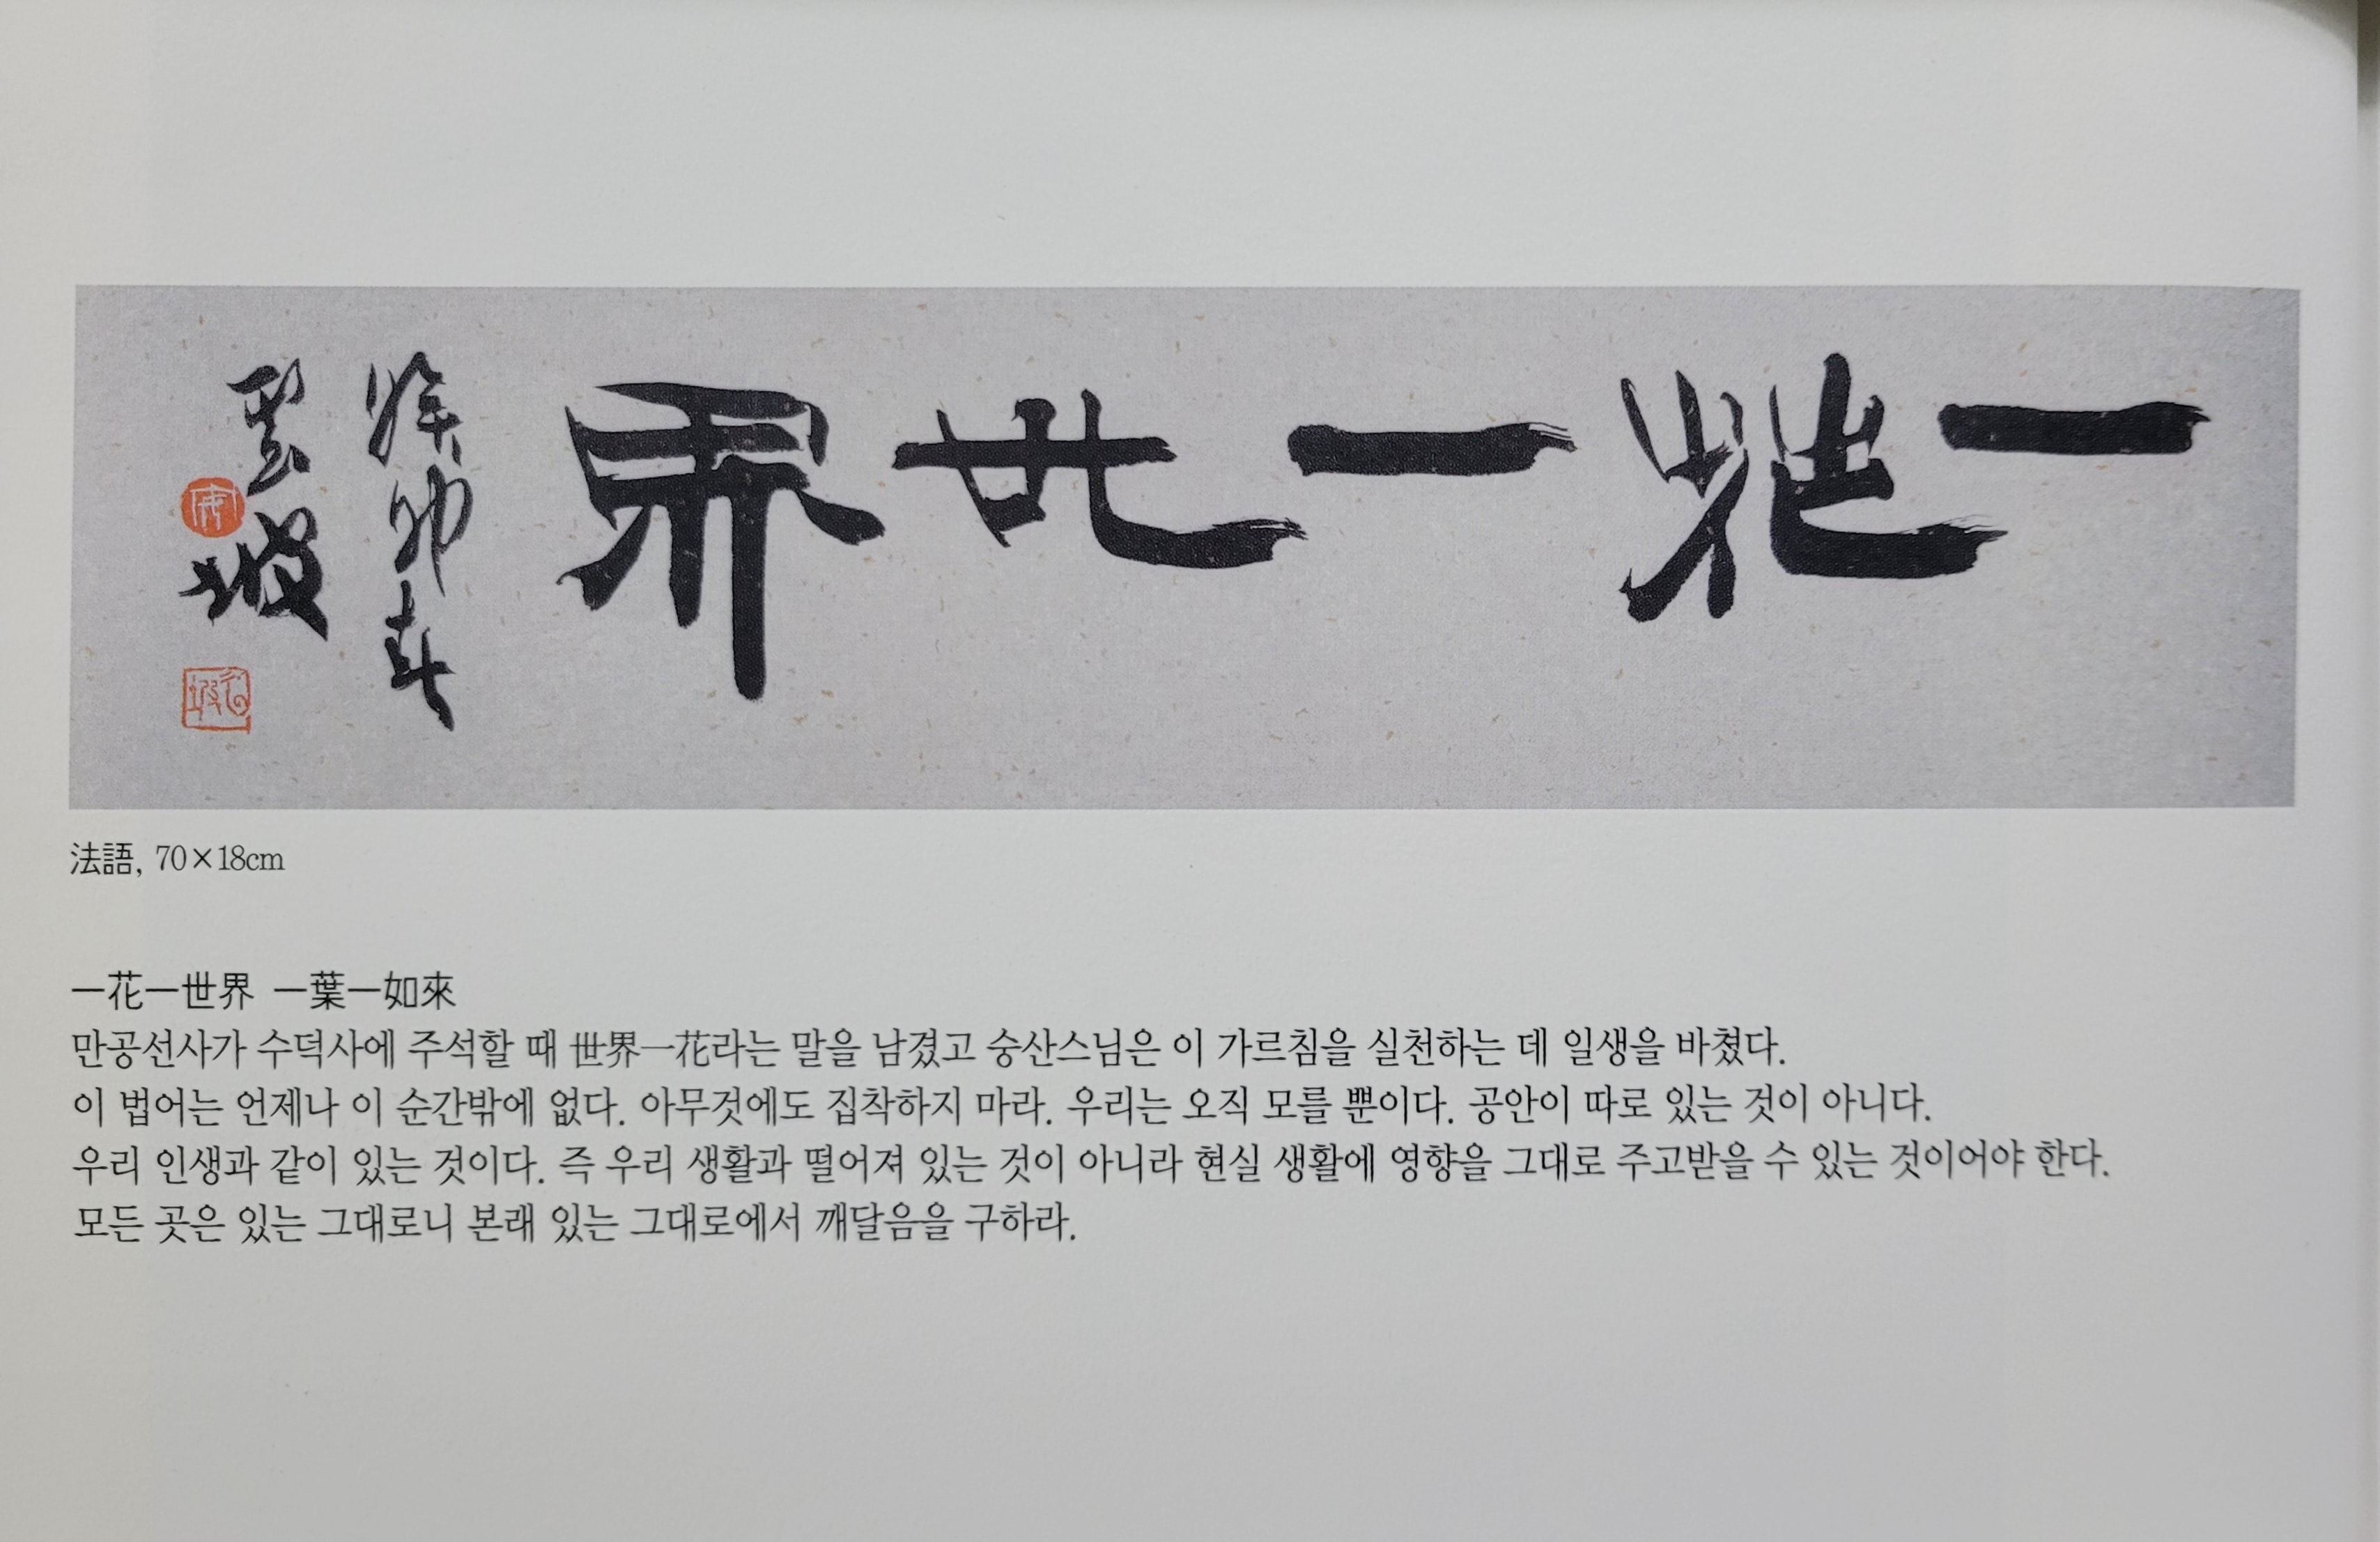 一花一世界
雲坡
法語, 70×18cm
一花一世界 一葉一如來
만공선사가 수덕사에 주석할 때 世界一花라는 말을 남겼고 숭산스님은 이 가르침을 실천하는 데 일생을 바쳤다.
이 법어는 언제나 이 순간밖에 없다. 아무것에도 집착하지 마라. 우리는 오직 모를 뿐이다. 공안이 따로 있는 것이 아니다.
우리 인생과 같이 있는 것이다. 즉 우리 생활과 떨어져 있는 것이 아니라 현실 생활에 영향을 그대로 주고받을 수 있는 것이어야 한다.
모든 곳은 있는 그대로니 본래 있는 그대로에서 깨달음을 구하라.